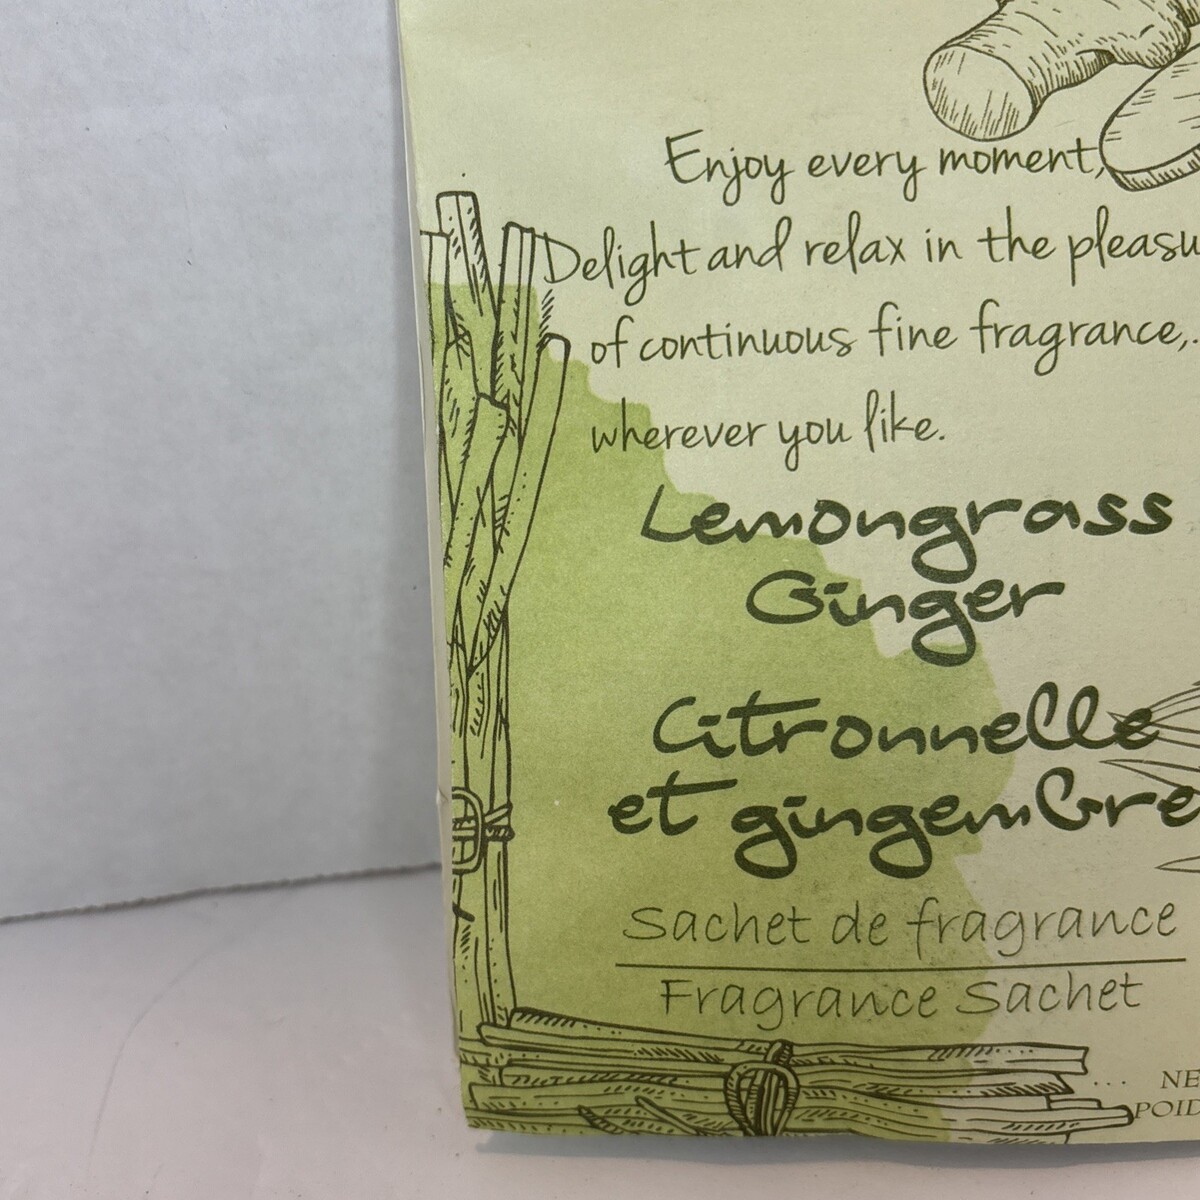 Enjoy every moment,
Delight and relax in the
of continuous fine fragrance,.
wherever you like.
Lemongrass
Ginger
Citronnelle
et gingembre
Sachet de fragrance
Fragrance Sachet